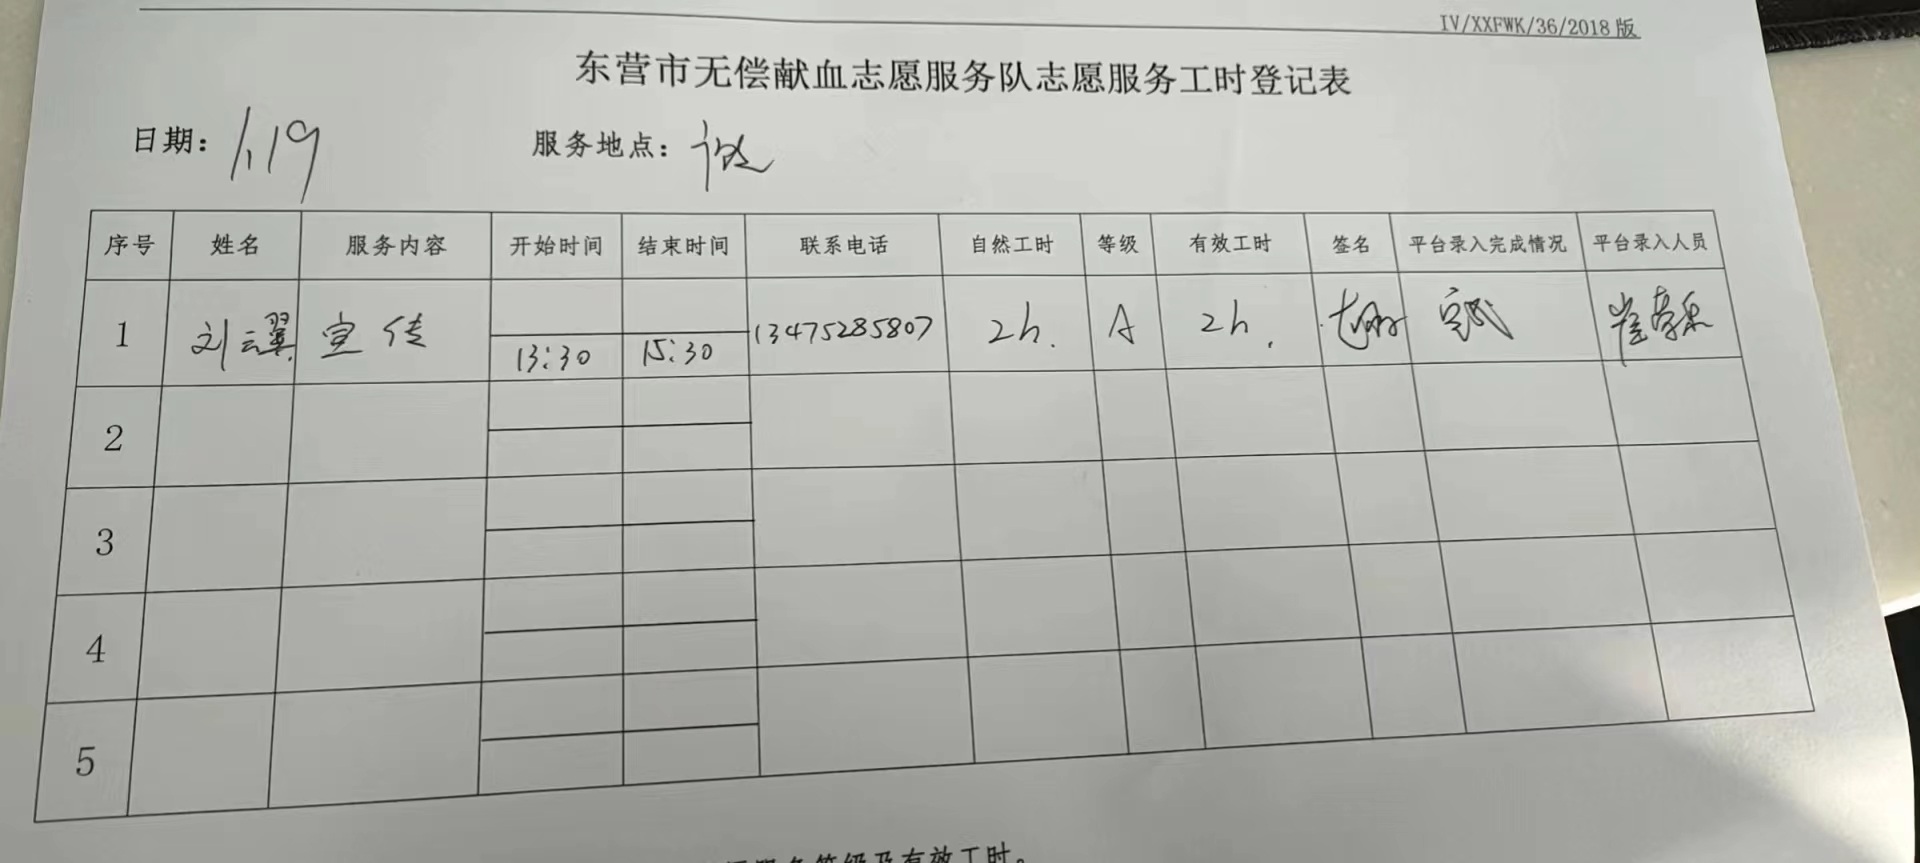 IV/XXFWK/36/2018版
东营市无偿献血志愿服务队志愿服务工时登记表
日期： 1.19 服务地点：
序号 姓名 服务内容 开始时间 结束时间 联系电话 自然工时 等级 有效工时 签名 平台录入完成情况 平台录入人员
1 刘云翼 宣传 13:30 15:30 13475285807 2h. A 2h. 完成
2
3
4
5
服务等级及有效工时。